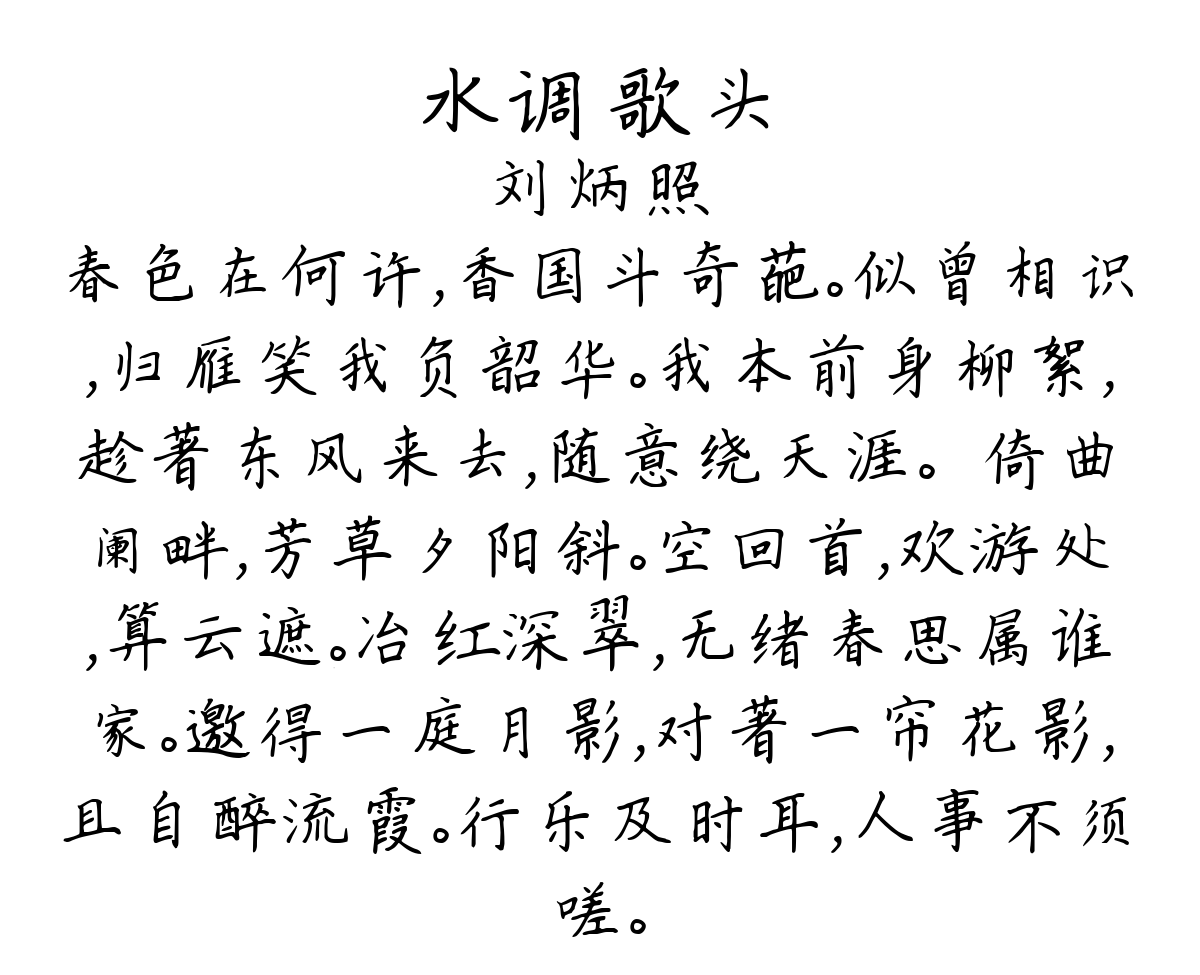 水调歌头
刘炳照
春色在何许,香国斗奇葩。似曾相识
,归雁笑我负韶华。我本前身柳絮,
趁著东风来去,随意绕天涯。倚曲
阑畔,芳草夕阳斜。空回首,欢游处
,算云遮。冶红深翠,无绪春思属谁
家。邀得一庭月影,对著一帘花影,
且自醉流霞。行乐及时耳,人事不须
嗟。